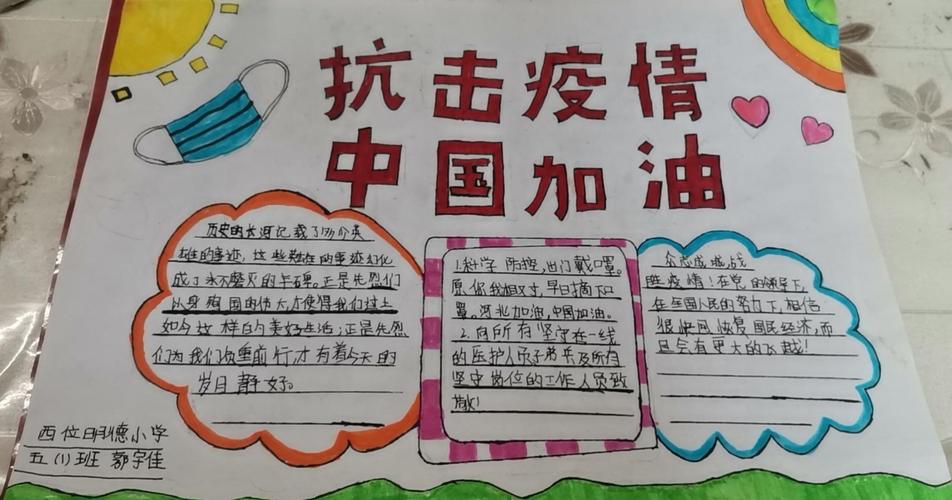 抗击疫情
中国加油
历史的长河记载了
雄的事迹，这些英雄的事迹幻化
成了永不磨灭的丰碑。正是先烈们
以身殉国的伟大，才使得我们过上
如今这样的美好生活；正是先烈
们为我们负重前行才有着今天的
岁月静好。
1.科学防控，出门戴口罩。
愿你我相对，早日摘下口
罩。河北加油，中国加油。
2.向所有坚守在一线
的医护人员子弟兵及所有
坚守岗位的工作人员致
敬！
众志成城战
胜疫情！在党的领导下，
在全国人民的努力下，相信
很快回恢复国民经济，而
且会有更大的飞越！
西位明德小学
五（1）班 郭宇佳